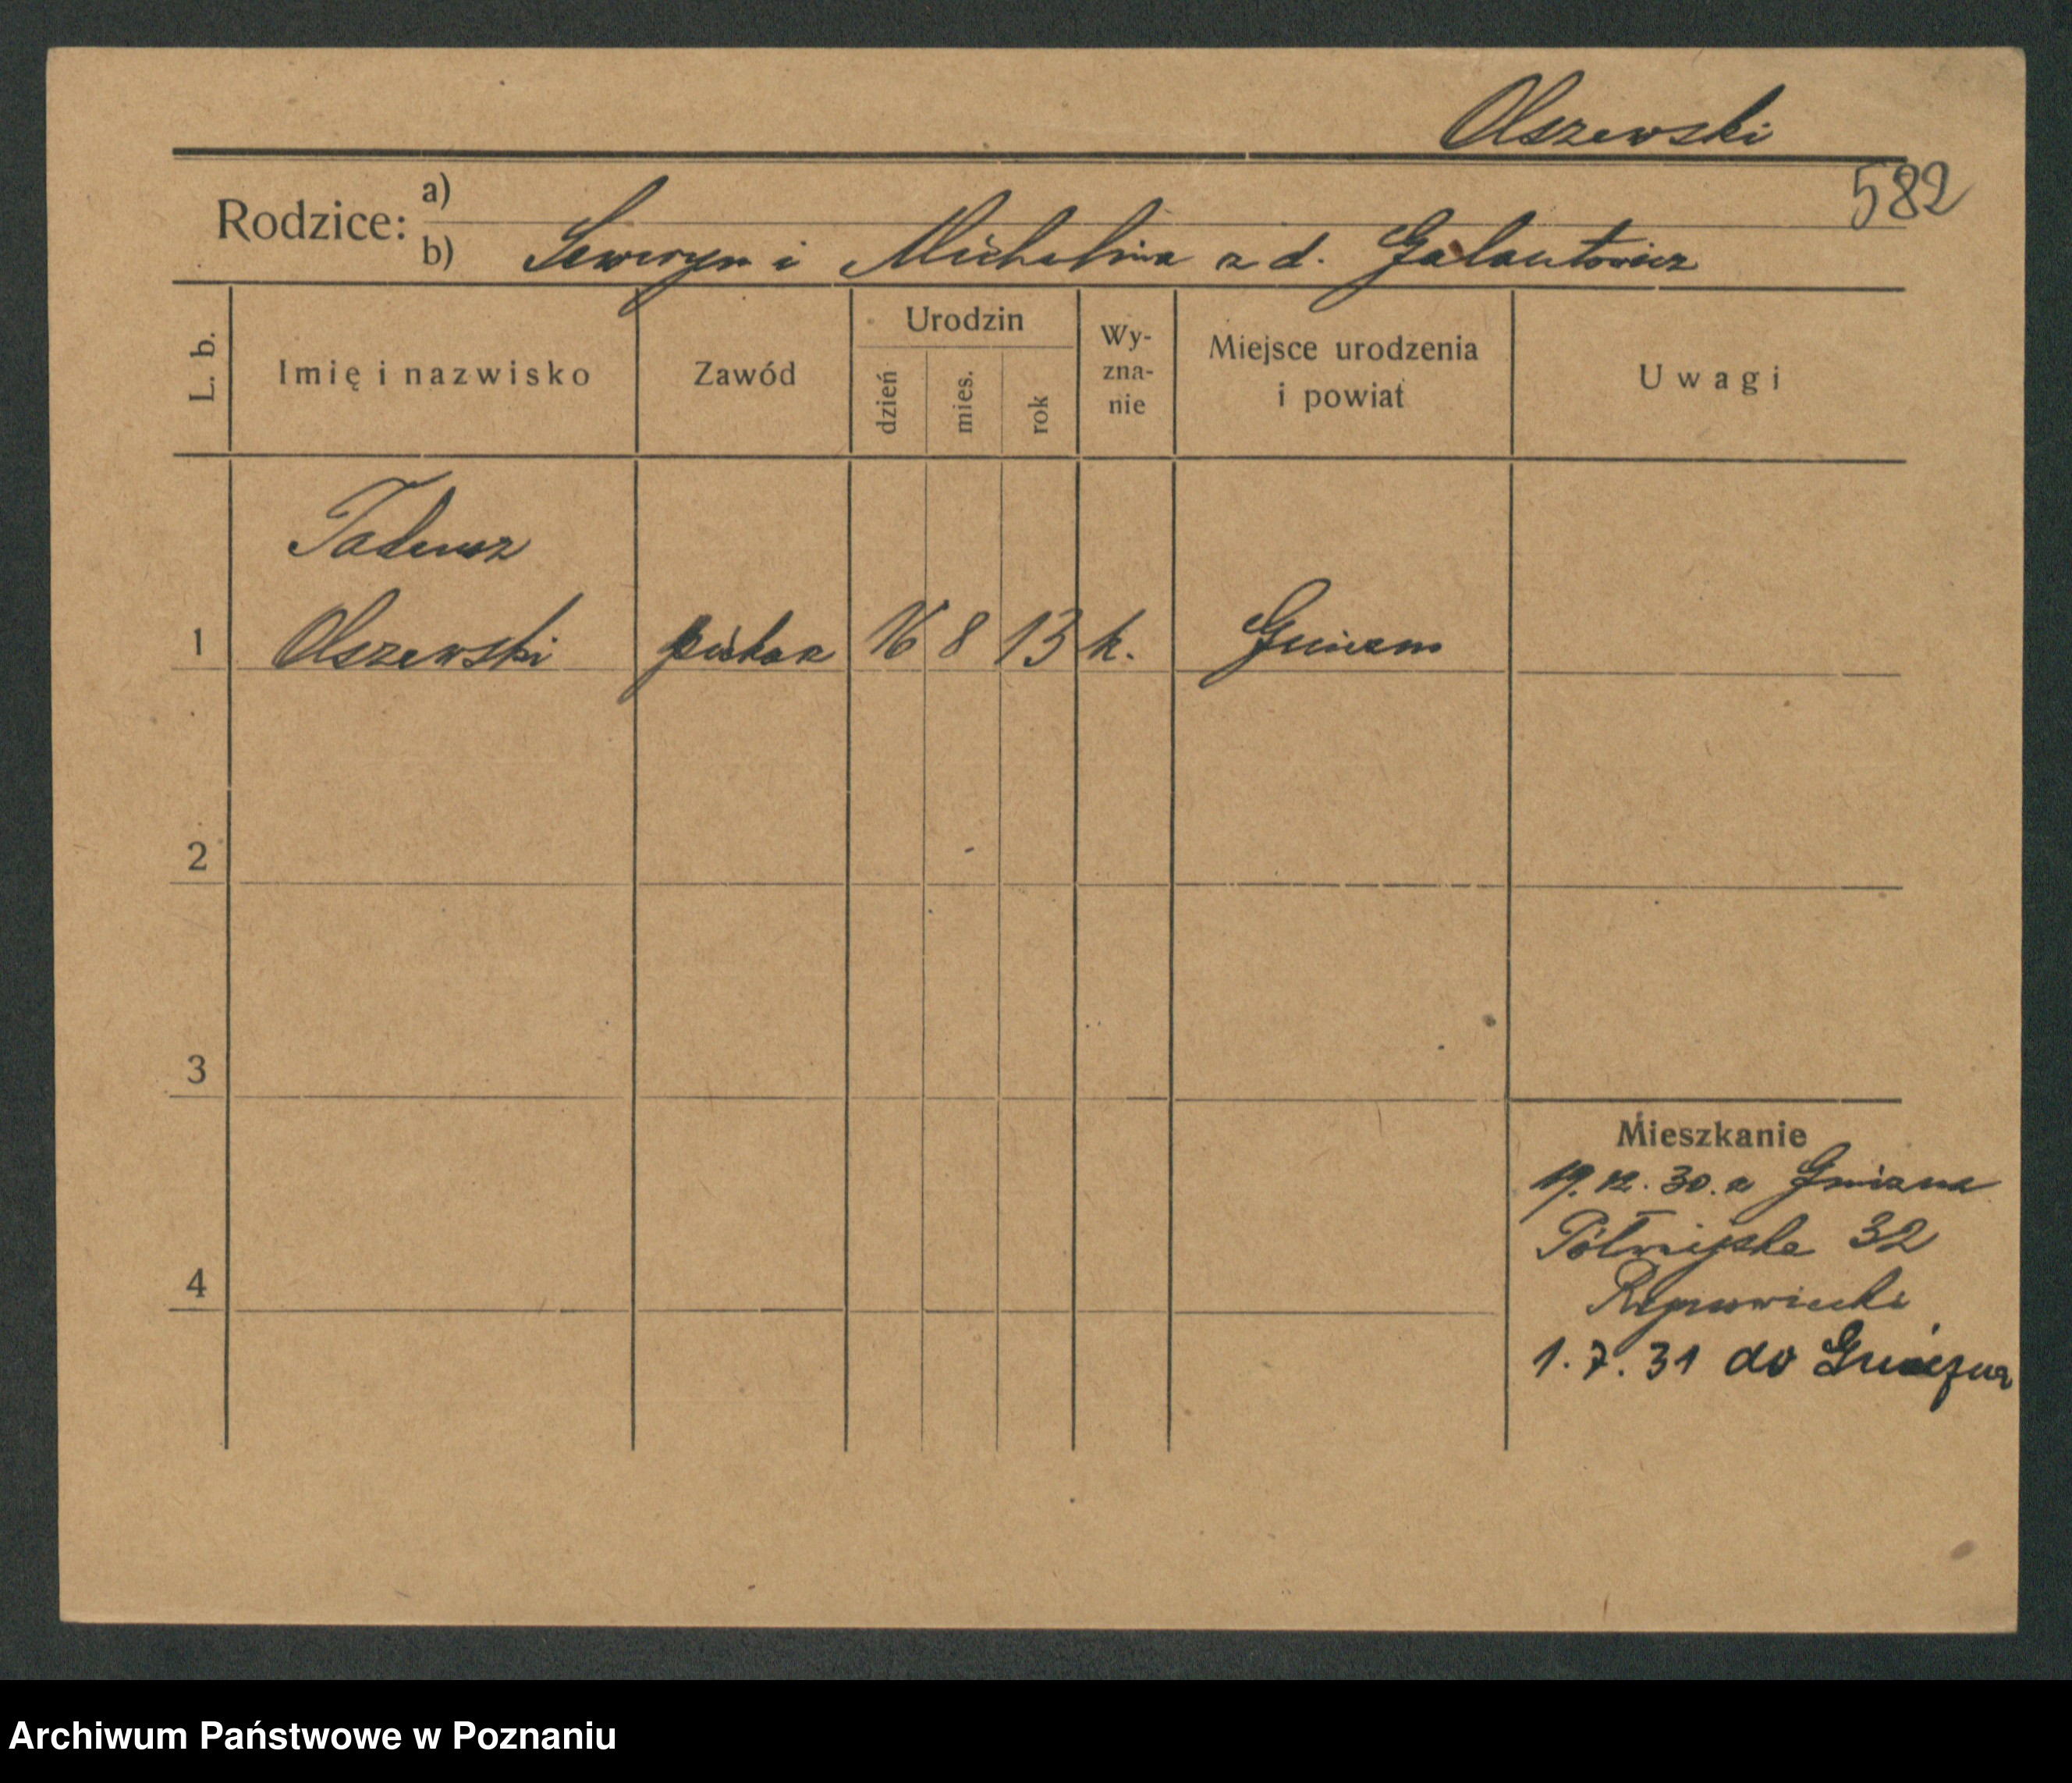 Olszewski
582
Rodzice:
a)
b) Seweryn i Michalina z d. Galantowicz
L. b.
Imię i nazwisko
Zawód
Urodzin
dzień
mies.
rok
Wy-
zna-
nie
Miejsce urodzenia
i powiat
Uwagi
Tadeusz
1 Olszewski 16 8 13 k.
2
3
4
Mieszkanie
19.12.30. z Gniezna
Półwiejska 32
1.7.31 do Gniezna
Archiwum Państwowe w Poznaniu